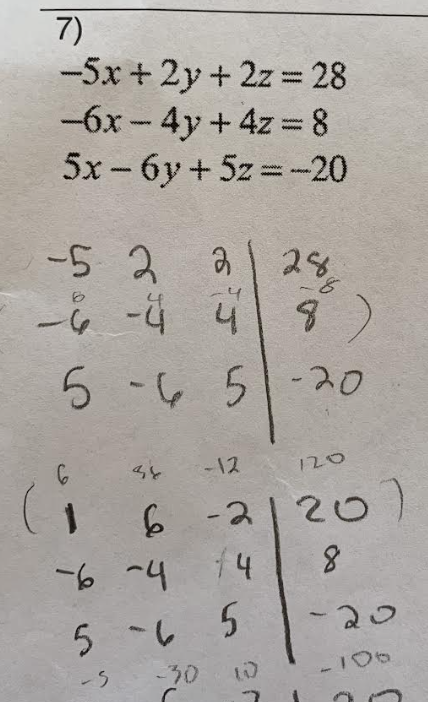 7)
−5x + 2y + 2z = 28
−6x − 4y + 4z = 8
5x − 6y + 5z = −20
-5 2 2 | 28
6 4 -4 -8
-6 -4 4 | 8 )
5 -6 5 | -20
6 36 -12 120
( 1 6 -2 | 20 )
-6 -4 4 | 8
5 -6 5 | -20
-5 -30 10 -100